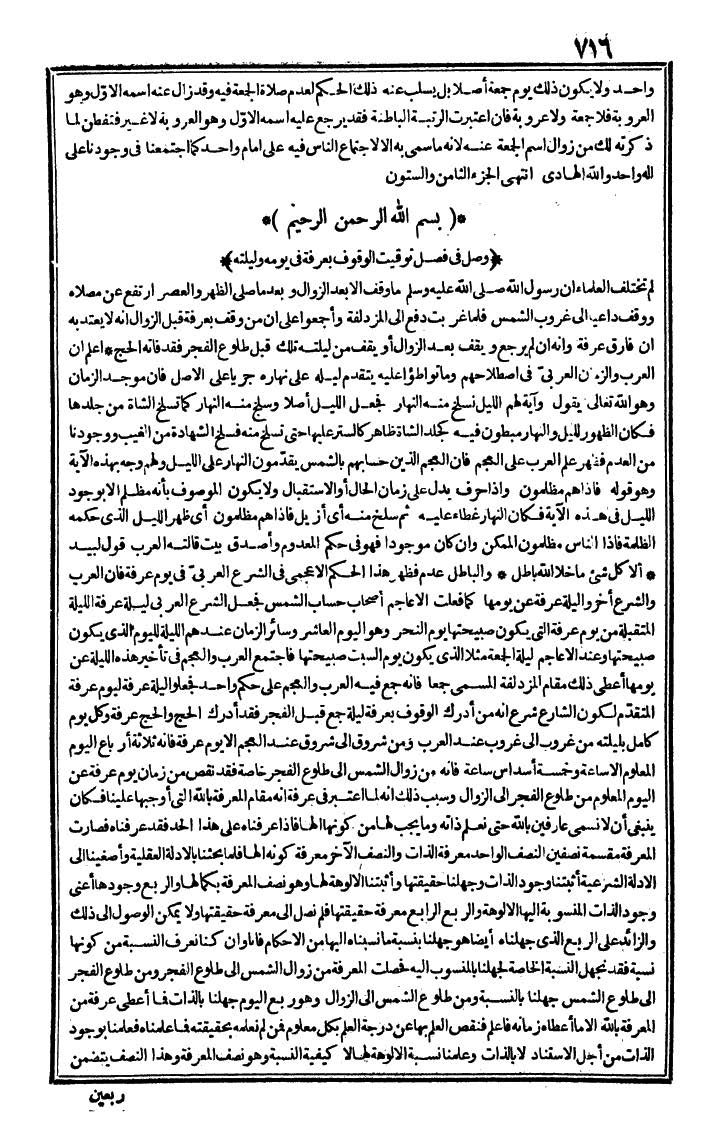 ٧١٦
واحد ولا يكون ذلك يوم جمعة أصلا بل يسلب عنه ذلك الحكم لعدم صلاة الجمعة فيه وقد زال عنه اسمه الاوّل وهو
العروبة فلاجعة ولاعروبة فان اعتبرت الرتبة الباطنة فقد يرجع عليه اسمه الاوّل وهو العروبة لا غير فتفطن لما
ذكرته لك من زوال اسم الجمعة عنه لانه ماسمى به الا لاجتماع الناس فيه على امام واحد كما اجتمعنا فى وجودنا على
اله واحد والله الهادى انتهى الجزء الثامن والستون
*( بسم الله الرحمن الرحيم )*
﴿وصل فى فصل توقيت الوقوف بعرفة فى يومه وليلته﴾
لم تختلف العلماء ان رسول الله صلى الله عليه وسلم ماوقف الابعد الزوال وبعد ماصلى الظهر والعصر ارتفع عن مصلاه
ووقف داعيا الى غروب الشمس فلما غربت دفع الى المزدلفة وأجعوا على ان من وقف بعرفة قبل الزوال انه لا يعتد به
ان فارق عرفة وانه ان لم يرجع و يقف بعد الزوال أو يقف من ليلته تلك قبل طلوع الفجر فقد فاته الحج * اعلم ان
العرب والزمن العربىّ فى اصطلاحهم وماتواطؤا عليه يتقدم ليله على نهاره جريا على الاصل فان موجد الزمان
وهو الله تعالى يقول وآية لهم الليل نسلخ منه النهار فجعل الليل أصلا وسلخ منه النهار كما تسلخ الشاة من جلدها
فكان الظهور لليل والنهار مبطون فيه كجلد الشاة ظاهر كالستر عليها حتى تسلخ منه فسلخ الشهادة من الغيب ووجودنا
من العدم فظهر علم العرب على العجم فان العجم الذين حسابهم بالشمس يقدّمون النهار على الليل ولهم وجه بهذه الآية
وهو قوله فاذاهم مظلمون واذا حرف يدل على زمان الحال أو الاستقبال ولا يكون الموصوف بأنه مظلم الا بوجود
الليل فى هذه الآية فكان النهار غطاء عليه ثم سلخ منه أى أزيل فاذاهم مظلمون أى ظهر الليل الذى حكمه
الظلمة فاذا الناس مظلمون الممكن وان كان موجودا فهو فى حكم المعدوم وأصدق بيت قالته العرب قول لبيد
* ألا كل شئ ماخلا الله باطل * والباطل عدم فظهر هذا الحكم الاعجمى فى الشرع العربىّ فى يوم عرفة فان العرب
والشرع أخروا ليلة عرفة عن يومها كما فعلت الاعاجم أصحاب حساب الشمس فجعل الشرع العربى ليلة عرفة الليلة
المتقبلة من يوم عرفة التى يكون صبيحتها يوم النحر وهو اليوم العاشر وسائر الزمان عندهم الليلة لليوم الذى يكون
صبيحتها وعند الاعاجم ليلة الجمعة مثلا الذى يكون يوم السبت صبيحتها فاجتمع العرب والعجم فى تأخير هذه الليلة عن
يومها أعطى ذلك مقام المزدلفة المسمى جعا فانه جع فيه العرب والعجم على حكم واحد فجعلوا ليلة عرفة ليوم عرفة
المتقدّم لكون الشارع شرع انه من أدرك الوقوف بعرفة ليلة جع قبل الفجر فقد أدرك الحج والحج عرفة وكل يوم
كامل بليلته من غروب الى غروب عند العرب ومن شروق الى شروق عند العجم الا يوم عرفة فانه ثلاثة أرباع اليوم
المعلوم الاساعة وخمسة أسداس ساعة فانه من زوال الشمس الى طلوع الفجر خاصة فقد نقص من زمان يوم عرفة عن
اليوم المعلوم من طلوع الفجر الى الزوال وسبب ذلك انه لما اعتبر فى عرفة انه مقام المعرفة بالله التى أوجبها علينا فكان
ينبغى أن لا نسمى عارفين بالله حتى نعلم ذاته وما يجب لها من كونها الها فاذا عرفناه على هذا الحد فقد عرفناه فصارت
المعرفة مقسمة نصفين النصف الواحد معرفة الذات والنصف الآخر معرفة كونه الها فلما بحثنا بالادلة العقلية وأصغينا الى
الادلة الشرعية أثبتنا وجود الذات وجهلنا حقيقتها وأثبتنا الالوهة لها وهو نصف المعرفة بكمالها والربع وجودها أعنى
وجود الذات المنسوبة اليها الالوهة والربع الرابع معرفة حقيقتها فلم نصل الى معرفة حقيقتها ولا يمكن الوصول الى ذلك
والزائد على الربع الذى جهلناه أيضا هو جهلنا بنسبة مانسبناه اليها من الاحكام فانا وان كنا نعرف النسبة من كونها
نسبة فقد نجهل النسبة الخاصة لجهلنا بالمنسوب اليه فحصلت المعرفة من زوال الشمس الى طلوع الفجر ومن طلوع الفجر
الى طلوع الشمس جهلنا بالنسبة ومن طلوع الشمس الى الزوال وهو ربع اليوم جهلنا بالذات فما أعطى عرفة من
المعرفة بالله الا ما أعطاه زمانه فاعلم فنقص العلم بها عن درجة العلم بكل معلوم فمن لم نعلمه بحقيقته فما علمناه فعلمنا بوجود
الذات من أجل الاستناد لا بالذات وعلمنا نسبة الالوهة لها لا كيفية النسبة وهو نصف المعرفة وهذا النصف يتضمن
ربعين